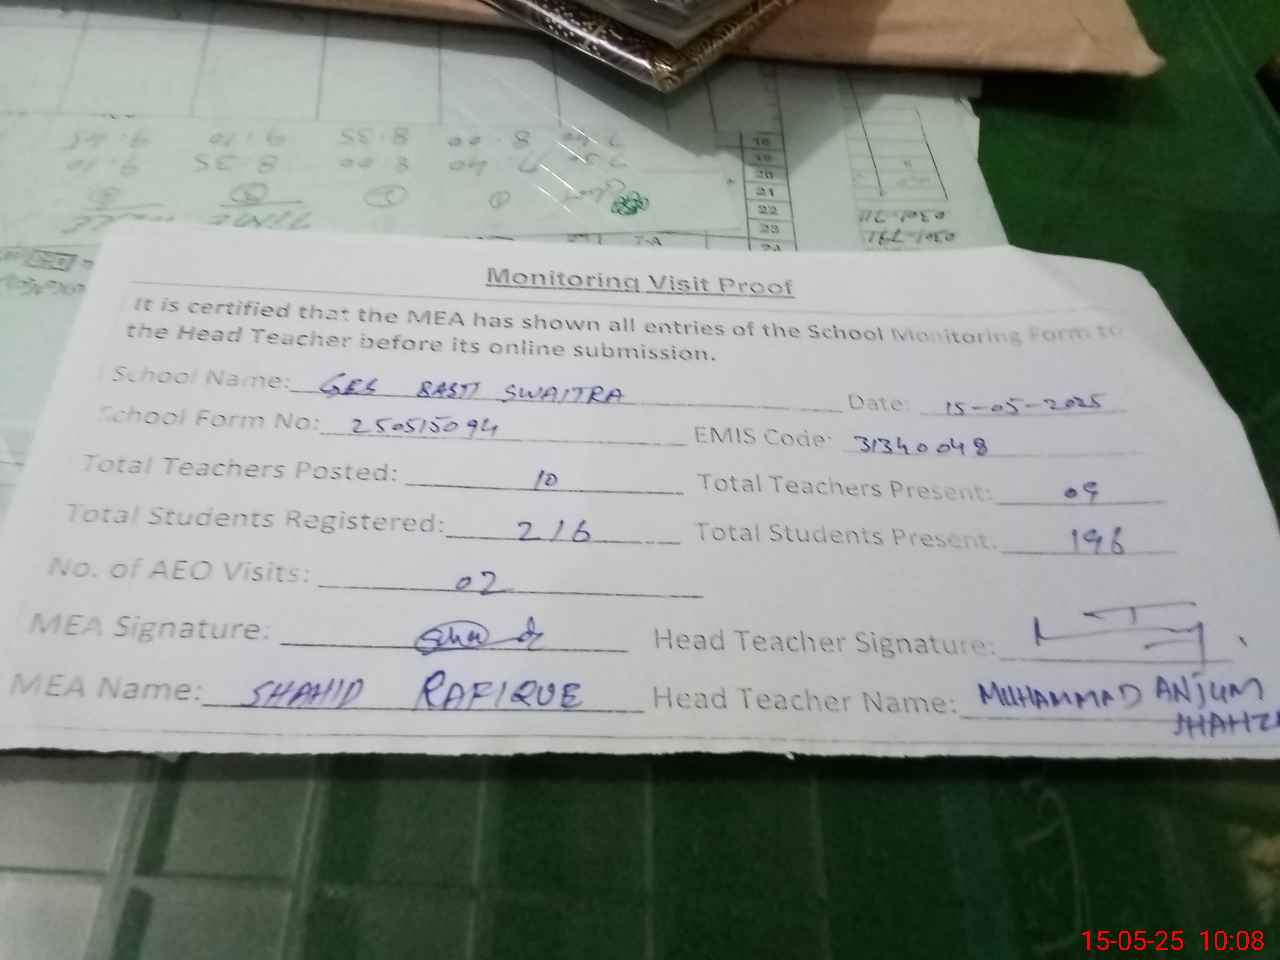 18
19
20
21
22
23
24
7-A
Monitoring Visit Proof
It is certified that the MEA has shown all entries of the School Monitoring Form to
the Head Teacher before its online submission.
School Name: GES BASTI SWAITRA Date: 15-05-2025
School Form No: 250515094 EMIS Code: 31340048
Total Teachers Posted: 10 Total Teachers Present: 09
Total Students Registered: 216 Total Students Present: 196
No. of AEO Visits: 02
MEA Signature: Head Teacher Signature:
MEA Name: SHAHID RAFIQUE Head Teacher Name: MUHAMMAD ANJUM
15-05-25 10:08